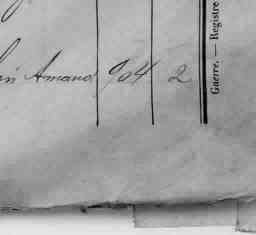 Amand 904 2
Guerre. — Registre